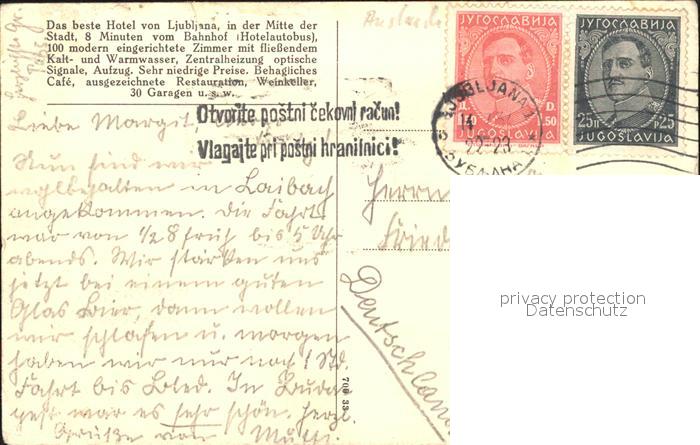 Das beste Hotel von Ljubljana, in der Mitte der
Stadt, 8 Minuten vom Bahnhof (Hotelautobus),
100 modern eingerichtete Zimmer mit fließendem
Kalt- und Warmwasser, Zentralheizung optische
Signale, Aufzug. Sehr niedrige Preise. Behagliches
Café, ausgezeichnete Restauration, Weinkeller,
30 Garagen u. s. w.
Otvorite poštni čekovni račun!
Vlagajte pri poštni hranilnici!
Liebe Margit
Nun sind wir
wohlbehalten in Laibach
angekommen. Die Fahrt
war von 1/2 8 früh bis 5 Uhr
abends. Wir stärken uns
jetzt bei einem guten
Glas Bier, dann wollen
wir schlafen u. morgen
haben wir nur noch 1 Std.
Fahrt bis Bled. In Buda-
pest war es sehr schön. Herzl.
Grüße von Mutti.
Ausland
ЈУГОСЛАВИЈА
Д. D.
1.50
JUGOSLAVIJA
ЈУГОСЛАВИЈА
25П P25
JUGOSLAVIJA
LJUBLJANA 1
22-23
Herrn
Fried
Deutschland
709 33
privacy protection
Datenschutz